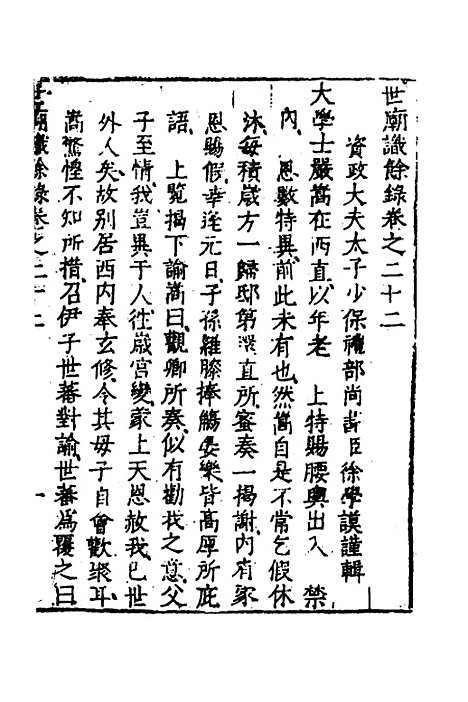 世廟識餘錄卷之二十二
資政大夫太子少保禮部尚書臣徐學謨謹輯
大學士嚴嵩在西直以年老 上特賜腰輿出入 禁
內 恩數特異前此未有也然嵩自是不常乞假休
沐每積歲方一歸邸第還直所密奏一揭謝內有家
恩賜假幸逢元日子孫羅膝捧觴晏樂皆高厚所庇
語 上覽揭下諭嵩曰觀卿所奏似有勸我之意父
子至情我豈異于人往歲宮變蒙上天恩赦我已世
外人矣故别居西内奉玄修令其母子自會歡聚耳
嵩驚惶不知所措召伊子世蕃對諭世蕃為覆之曰
世廟識餘錄卷之二十二
一